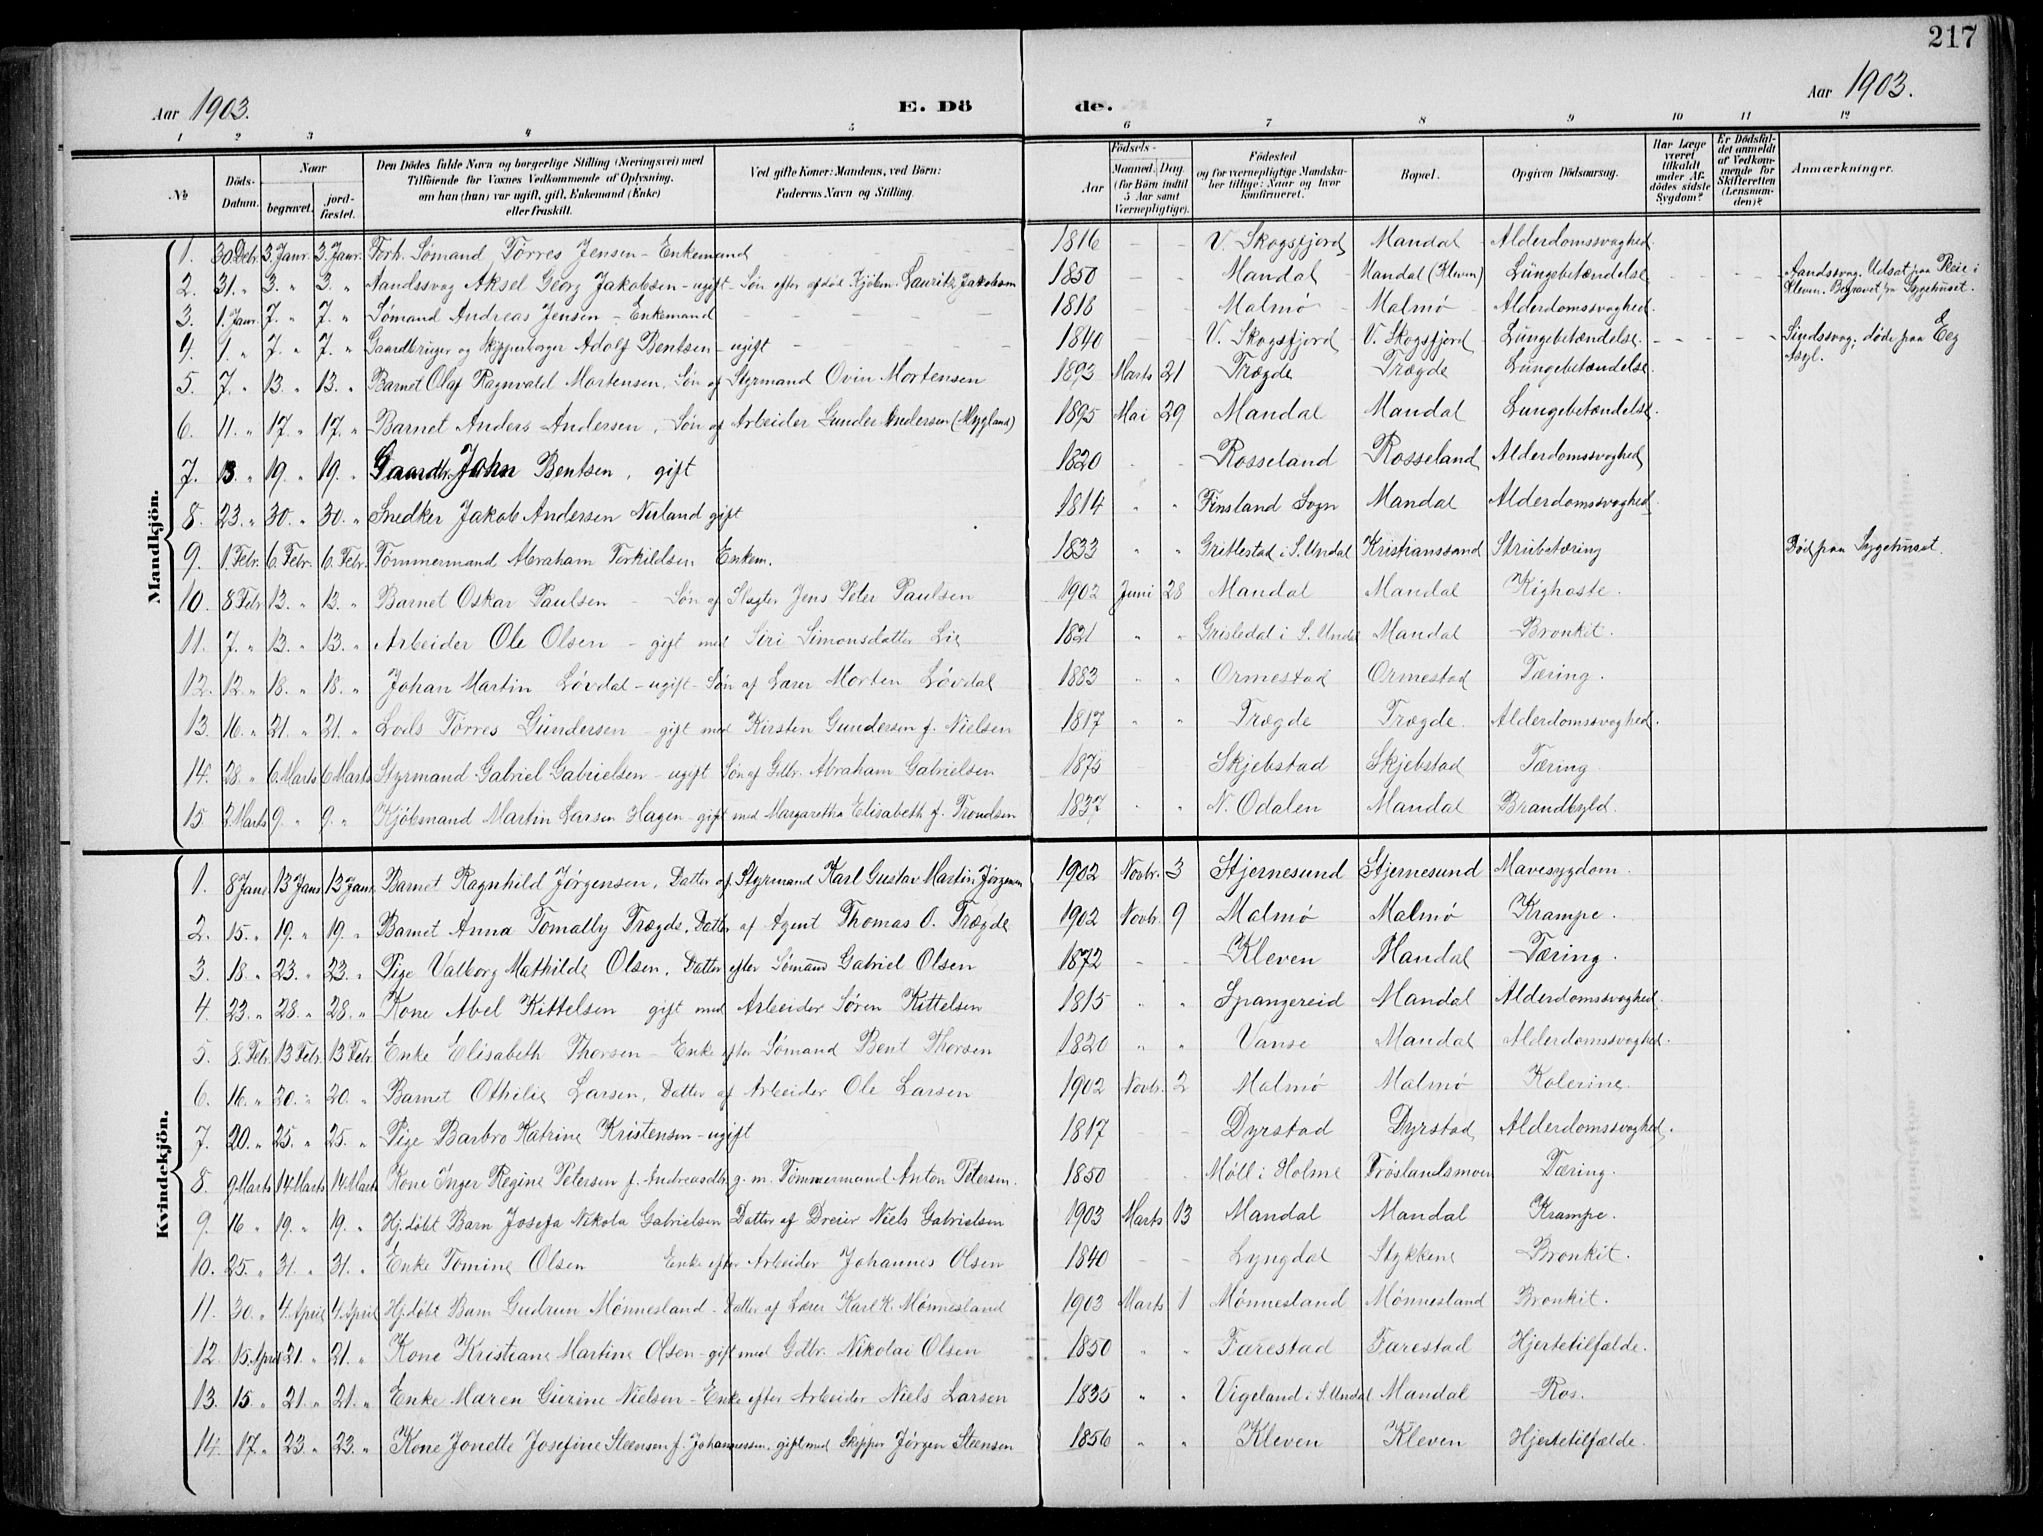 217
Aar 1903. E. Dö de. Aar 1903.
1 2 3 4 5 6 7 8 9 10 11 12
No
Döds-Datum.
Naar
begravet.
jord-fæstet.
Den Dödes fulde Navn og borgerlige Stilling (Næringsvei) med
Tilföiende for Voxnes Vedkommende af Oplysning,
om han (hun) var ugift, gift, Enkemand (Enke)
eller fraskilt.
Ved gifte Koner: Mandens, ved Börn:
Faderens Navn og Stilling.
Födsels-
Aar
Maaned. Dag
(for Börn indtil
5 Aar samt
Værnepligtige).
Födested
og for værnepligtige Mandska-
ber tillige: Naar og hvor
konfirmeret.
Bopæl.
Opgiven Dödsaarsag.
Har Læge
været
tilkaldt
under Af-
dödes sidste
Sygdom?
Er Dödsfal-
det anmeldt
af Vedkom-
mende for
Skifteretten
(Lensman-
den)?
Anmærkninger.
Mandkjön.
1. 30 Debr. 3. Janr. 3. Janr. Forh. Sømand Tørres Jensen - Enkemand - - 1816 - - V. Skogsfjord Mandal - Alderdomssvaghed.
2. 31. " 3. " 3. " Aandssvag Aksel Georg Jakobsen - ugift - Søn efter afdøde Kjøbm. Lauritz Jakobsen 1850 - - Mandal - Mandal (Kleven) Lungebetændelse - - - - Aandssvag. Udsat paa Pleie i
Kleven. Begravet fra Sygehuset.
3. 1. Janr. 7. " 7. " Sømand Andreas Jensen - Enkemand - - - 1818 - - Malmø - Malmø - Alderdomssvaghed.
4. 1. " 7. " 7. " Gaardbruger og Skipperborger Adolf Bentsen - ugift - - - 1840 - - V. Skogsfjord - V. Skogsfjord - Lungebetændelse. - - - - Sindssvag; døde paa Eeg
Asyl.
5. 7. " 13. " 13. " Barnet Olaf Ragnvald Mortensen, Søn af Styrmand Ovin Mortensen 1893 Marts 21 Trægde Trægde Lungebetændelse.
6. 11. " 17. " 17. " Barnet Anders Andersen, Søn af Arbeider Gunder Andersen (Mygland) 1895 Mai 29 Mandal Mandal Lungebetændelse.
7. 13. " 19. " 19. " Gaardbr. John Bentsen, gift 1820 " " Rosseland Rosseland Alderdomssvaghed
8. 23. " 30. " 30. " Snedker Jakob Andersen Nuland gift 1814 " " Finsland Sogn Mandal Alderdomssvaghed.
9. 1. Febr. 6. Febr. 6. Febr. Tømmermand Abraham Terkildsen Enkem. 1833 " " Grittestad i S. Undal Kristianssand Strubetæring Død paa Sygehuset.
10. 8 Febr. 13. " 13. " Barnet Oskar Paulsen - Søn af Slagter Jens Peter Paulsen 1902 Juni 28 Mandal Mandal Kighoste.
11. 7. " 13. " 13. " Arbeider Ole Olsen - gift med Siri Simonsdatter Lie 1821 " " Grisledal i S. Undal Mandal Bronkit.
12. 12. " 18. " 18. " Johan Martin Løvdal - ugift - Søn af Lærer Morten Løvdal 1883 " " Ormestad Ormestad Tæring.
13. 16. " 21. " 21. " Lods Tørres Gundersen - gift med Kirsten Gundersen f. Nielsen 1817 " " Trægde Trægde. Alderdomssvaghed.
14. 28. " 6. Marts 6 Marts Styrmand Gabriel Gabrielsen - ugift Søn af Gdbr. Abraham Gabrielsen 1875 - - Skjebstad Skjebstad Tæring
15 3 Marts 9. " 9. " Kjøbmand Martin Larsen Hagen - gift med Margaretha Elisabeth f. Trondsen 1837 " " N. Odalen Mandal Brandbyld.
Kvindekjön.
1. 8 Janr 13 Janr 13 Janr. Barnet Ragnhild Jørgensen, Datter af Styrmand Karl Gustav Martin Jørgensen 1902 Novbr. 3 Stjernesund Stjernesund Mavesygdom.
2. 15. " 19. " 19. " Barnet Anna Tomally Trægde, Datter af Agent Thomas O. Trægde 1902 Novbr. 9 Malmø Malmø Krampe.
3. 18. " 23. " 23. " Pige Valborg Mathilde Olsen, Datter efter Sømand Gabriel Olsen 1872 - - Kleven Mandal Tæring.
4. 23. " 28. " 28. " Kone Abel Kittelsen gift med Arbeider Søren Kittelsen 1815 " " Spangereid Mandal Alderdomssvaghed.
5. 8. Febr. 13 Febr. 13 Febr. Enke Elisabeth Thorsen - Enke efter Sømand Bent Thorsen 1820 " " Vanse Mandal Alderdomssvaghed.
6. 16. " 20. " 20. " Barnet Othilie Larsen, Datter af Arbeider Ole Larsen 1902 Novbr. 2 Malmø Malmø Kolerine.
7. 20. " 25. " 25. " Pige Barbro Katrine Kristensen - ugift 1817 - - Dyrstad Dyrstad Alderdomssvaghed.
8. 9 Marts 14 Marts 14 Marts Kone Inger Regine Petersen f. Andreasdtr. g. m. Tømmermand Anton Petersen. 1850 - - Møll i Holme Frøslandsmoen Tæring.
9. 16 " 19. " 19. " Hj.døbt Barn Josefa Nikola Gabrielsen Datter af Dreier Niels Gabrielsen 1903 Marts 13 Mandal Mandal Krampe.
10. 25. " 31. " 31. " Enke Tomine Olsen Enke efter Arbeider Johannes Olsen 1840 - - Lyngdal Stykkene Bronkit.
11. 30. " 4. April 4. April Hj.døbt Barn Gudrun Mønnesland - Datter af Lærer Karl K. Mønnesland 1903 Marts 1 Mønnesland Mønnesland Bronkit.
12. 15. April 21. " 21. " Kone Kristiane Martine Olsen - gift med Gdbr. Nikolai Olsen 1850 " " Farestad Farestad Hjertetilfælde.
13. 15. " 21. " 21. " Enke Maren Gurine Nielsen - Enke efter Arbeider Niels Larsen 1835 " " Vigeland i S. Undal Mandal Ros.
14. 17. " 23. " 23. " Kone Jonette Josefine Steensen f. Johannessen, gift med Skipper Jørgen Steensen 1856 " " Kleven Kleven Hjertetilfælde.